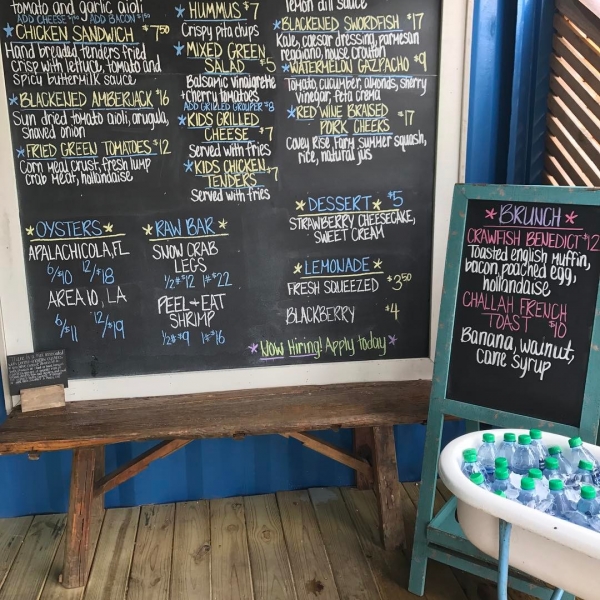 tomato and garlic aioli
ADD CHEESE ADD BACON
*CHICKEN SANDWICH $7.50
Hand breaded tenders fried
crisp with lettuce, tomato and
spicy buttermilk sauce
*BLACKENED AMBERJACK $16
Sun dried tomato aioli, arugula,
shaved onion
*FRIED GREEN TOMATOES $12
Corn meal crust, fresh lump
crab meat, hollandaise
*HUMMUS $7
Crispy pita chips
*MIXED GREEN
SALAD $5
Balsamic vinaigrette
cherry tomatoes
ADD GRILLED GROUPER $8
*KIDS GRILLED
CHEESE $7
Served with fries
*KIDS CHICKEN
TENDERS $7
Served with fries
lemon dill sauce
*BLACKENED SWORDFISH $17
Kale, caesar dressing, parmesan
reggiano, house crouton
*WATERMELON GAZPACHO $9
Tomato, cucumber, almonds, sherry
vinegar, feta crema
*RED WINE BRAISED
PORK CHEEKS $17
Covey Rise Farm summer squash,
rice, natural jus
*OYSTERS*
APALACHICOLA, FL
6/$10 12/$18
AREA 10, LA
6/$11 12/$19
*RAW BAR*
SNOW CRAB
LEGS
1/2# $12 1# $22
PEEL + EAT
SHRIMP
1/2# $9 1# $16
*DESSERT* $5
STRAWBERRY CHEESECAKE,
SWEET CREAM
*LEMONADE*
FRESH SQUEEZED $3.50
BLACKBERRY $4
*Now Hiring! Apply today*
*BRUNCH*
CRAWFISH BENEDICT $12
Toasted english muffin,
bacon, poached egg,
hollandaise
CHALLAH FRENCH
TOAST $10
Banana, walnut,
cane syrup